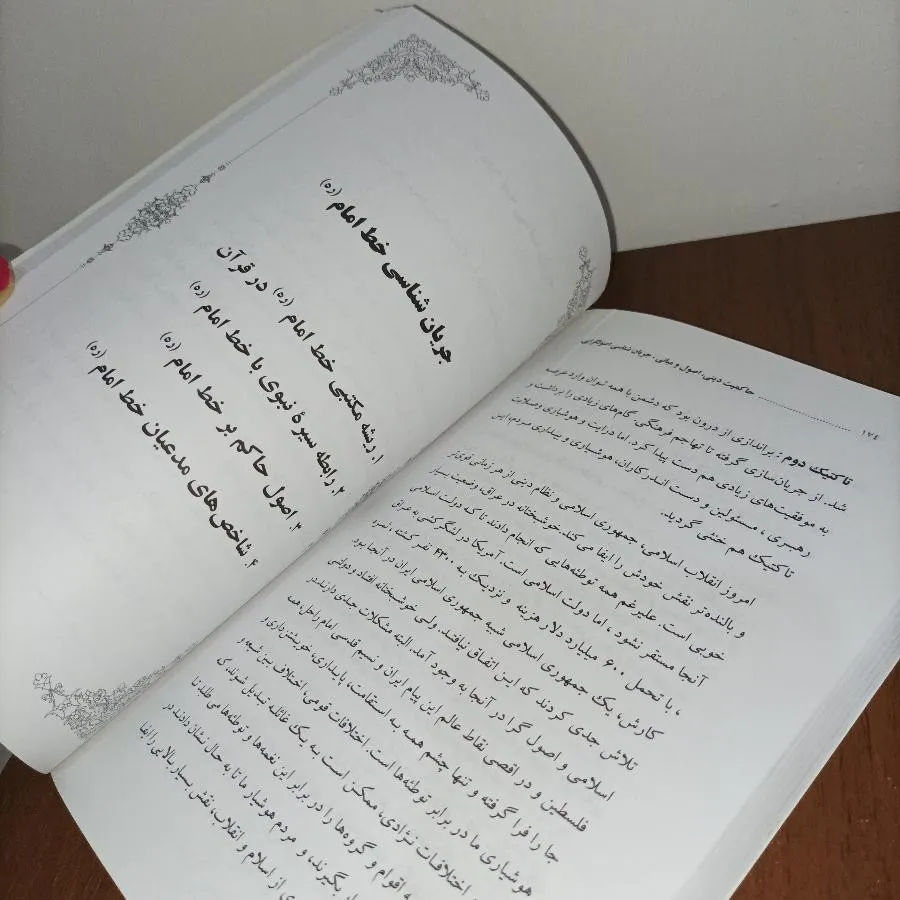 حاکمیت دینی، اصول و مبانی، جریان شناسی اصولگرایی
۱۷۴
تاکتیک دوم: براندازی از درون بود که دشمن با همه توان وارد عرصه
شد. از جریان‌سازی گرفته تا تهاجم فرهنگی گام‌های زیادی را برداشت و
به موفقیت‌های زیادی هم دست پیدا کرد. اما درایت و هوشیاری و صلابت
رهبری، مسئولین و دست اندرکاران، هوشیاری و بیداری مردم، این
تاکتیک هم خنثی گردید.
امروز انقلاب اسلامی، جمهوری اسلامی و نظام دینی از هر زمانی قوی‌تر
و بالنده‌تر نقش خودش را ایفا می کند. خوشبختانه در عراق، وضعیت بسیار
خوبی است. علیرغم همه توطئه‌هایی که انجام دادند تا که دولت اسلامی
آنجا مستقر نشود، اما دولت اسلامی است. آمریکا در لشگرکشی به عراق
، با تحمل ۶۰۰ میلیارد دلار هزینه و نزدیک به ۴۳۰۰ نفر کشته، نمره
کارش، یک جمهوری اسلامی شبیه جمهوری اسلامی ایران در آنجا بود
تلاش جدی کردند که این اتفاق نیافتد. ولی خوشبختانه افتاد و دولتی
اسلامی و اصول گرا در آنجا به وجود آمد. البته مشکلات جدی دارند در
فلسطین و در اقصی نقاط عالم این پیام ایران و نسیم قدسی امام راحل، همه
جا را فرا گرفته و تنها چشم همه به استقامت، پایداری، خویشتنداری و
هوشیاری ما در برابر توطئه‌ها است. اختلافات قومی، اختلاف بین شیعه و
اختلافات نژادی، ممکن است به یک غائله تبدیل شوند، که
اقوام و گروه‌ها را در برابر این نغمه‌ها و توطئه‌ها می طلبد تا
بگیرند، و مردم هوشیار ما تا به حال نشان دادند در
از اسلام و انقلاب، نقش بسیار بالایی را ایفا
جریان شناسی خط امام (ره)
۱. ریشه مکتبی خط امام (ره) در قرآن
۲. رابطه سیرۀ نبوی با خط امام (ره)
۳. اصول حاکم بر خط امام (ره)
۴. شاخص های مدعیان خط امام (ره)